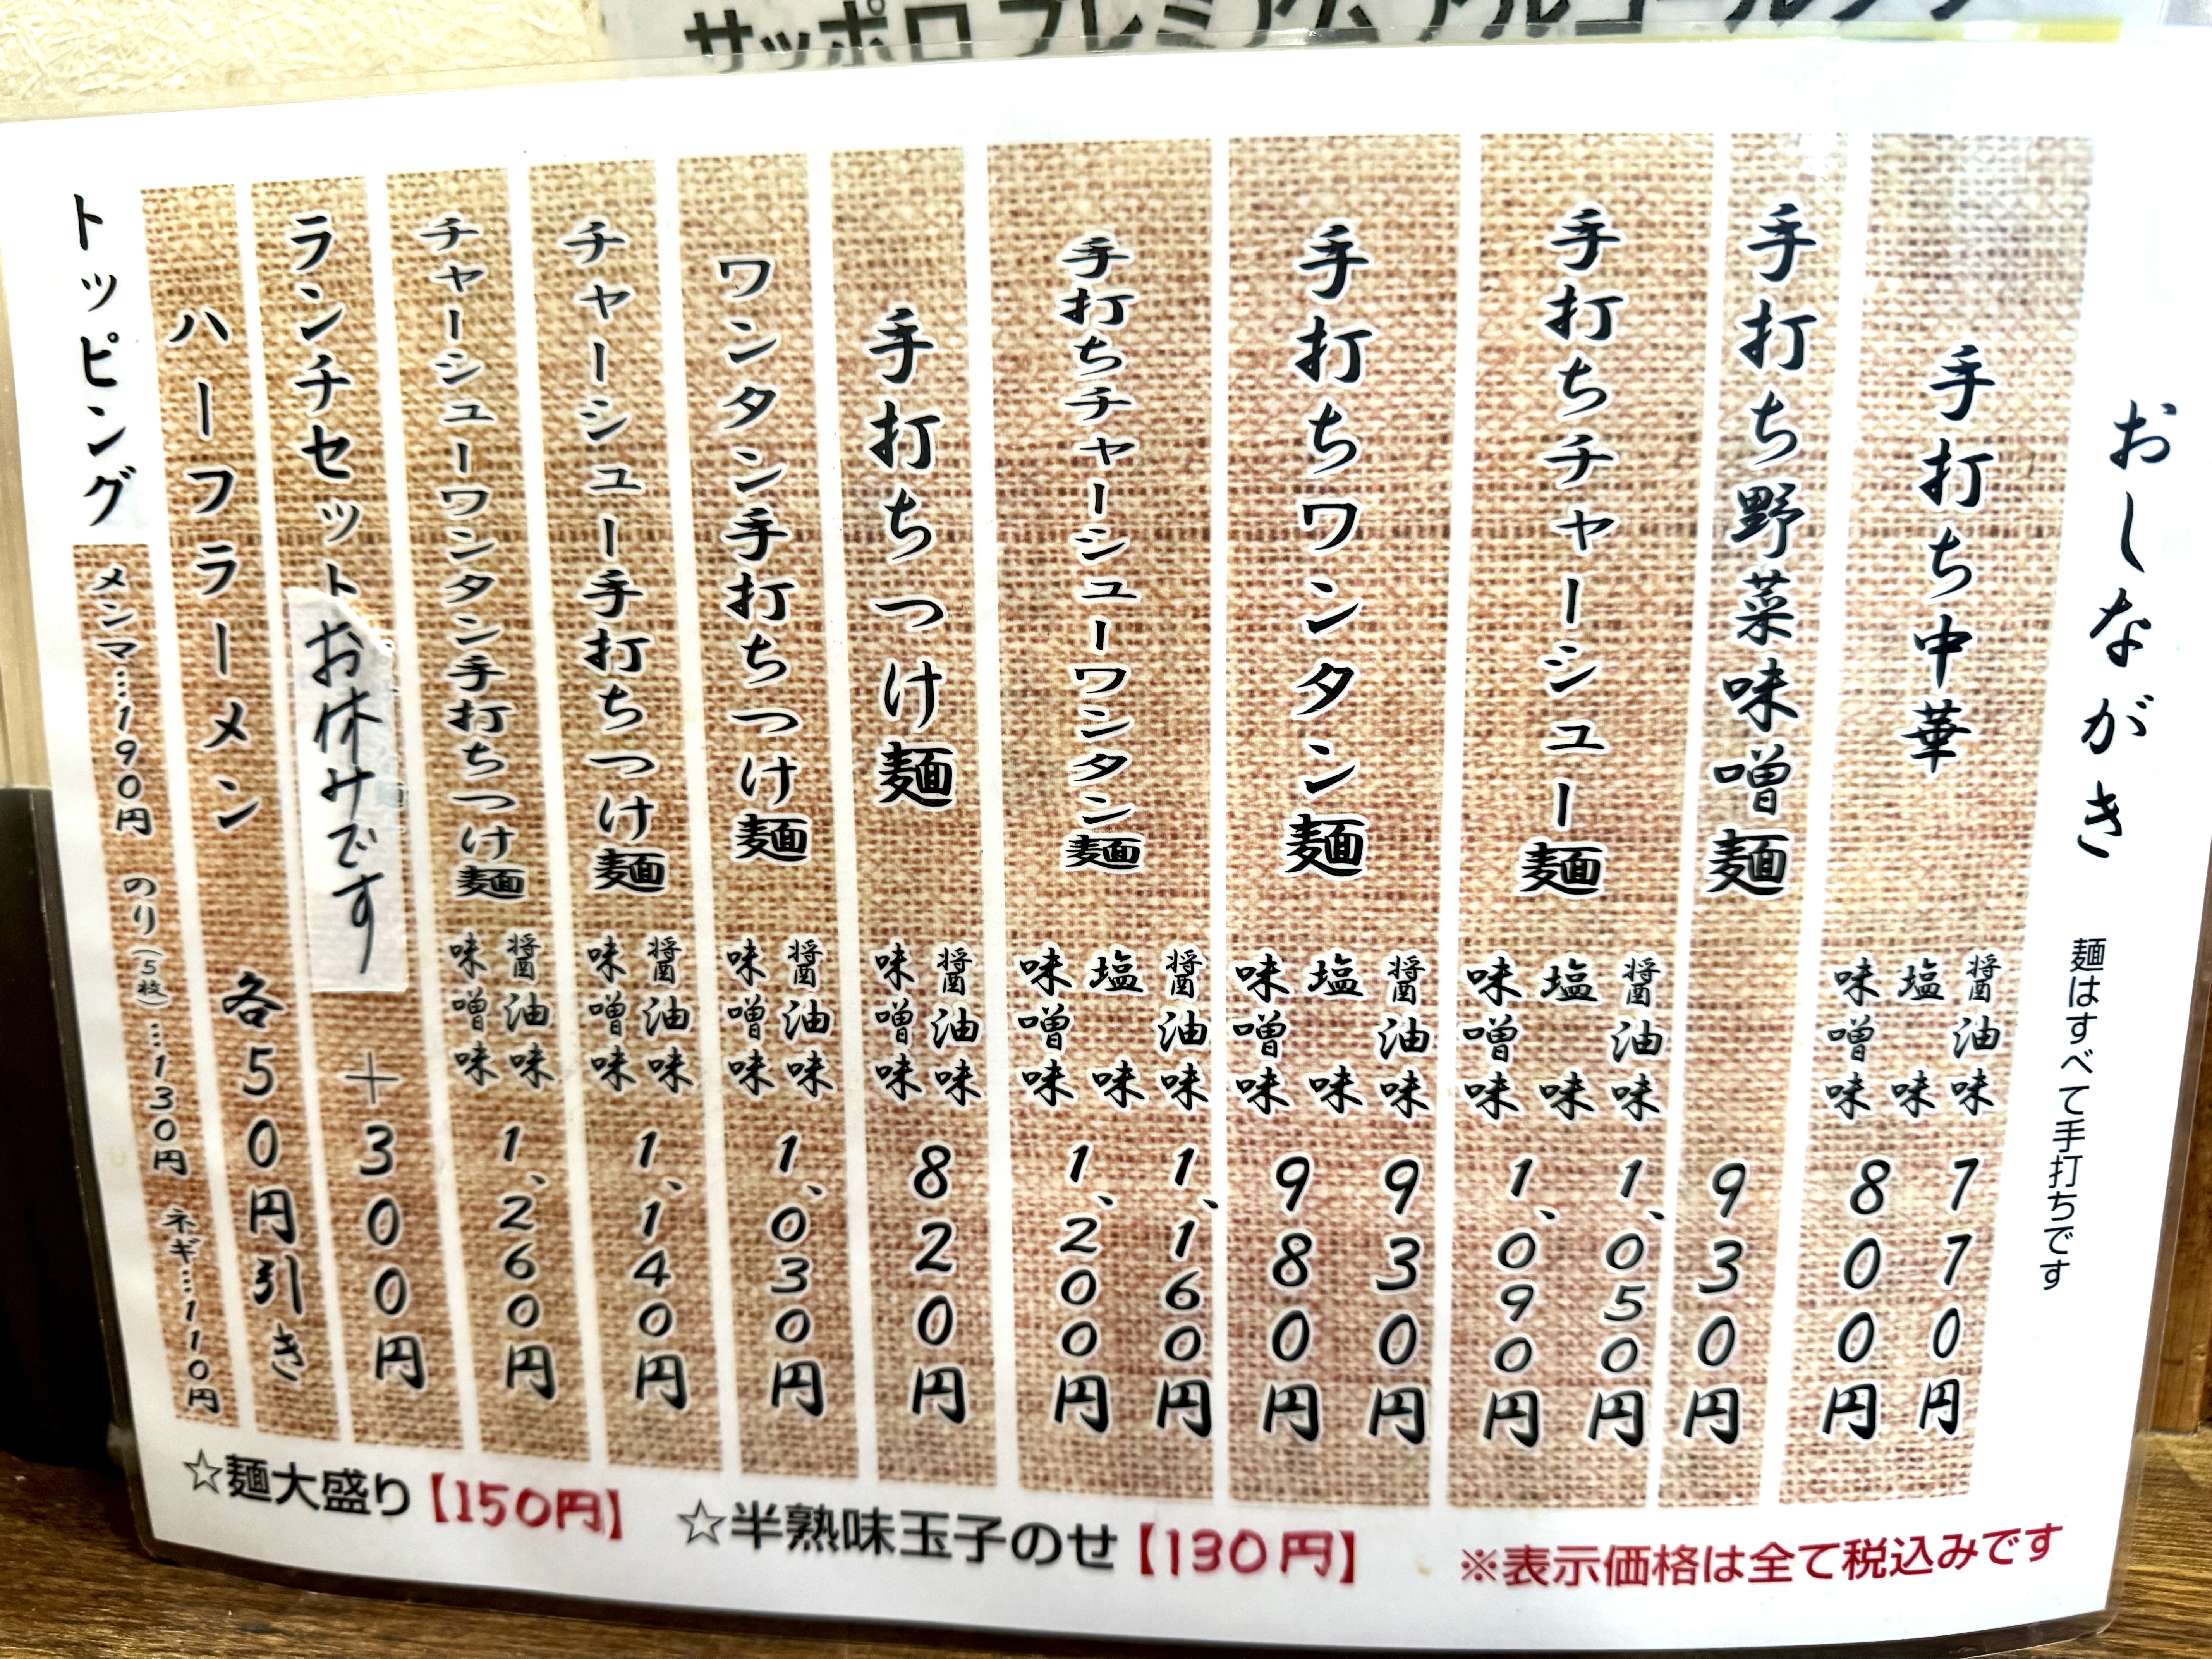 サッポロ プレミアム アルコール
おしながき 麺はすべて手打ちです
手打ち中華 醤油味 塩味 770円 味噌味 800円
手打ち野菜味噌麺 930円
手打ちチャーシュー麺 醤油味 塩味 1,050円 味噌味 1,090円
手打ちワンタン麺 醤油味 塩味 930円 味噌味 980円
手打ちチャーシューワンタン麺 醤油味 塩味 1,160円 味噌味 1,200円
手打ちつけ麺 醤油味 味噌味 820円
ワンタン手打ちつけ麺 醤油味 味噌味 1,030円
チャーシュー手打ちつけ麺 醤油味 味噌味 1,140円
チャーシューワンタン手打ちつけ麺 醤油味 味噌味 1,260円
ランチセット お休みです +300円
ハーフラーメン 各50円引き
トッピング メンマ…190円 のり(5枚)…130円 ネギ…110円
☆麺大盛り【150円】 ☆半熟味玉子のせ【130円】 ※表示価格は全て税込みです